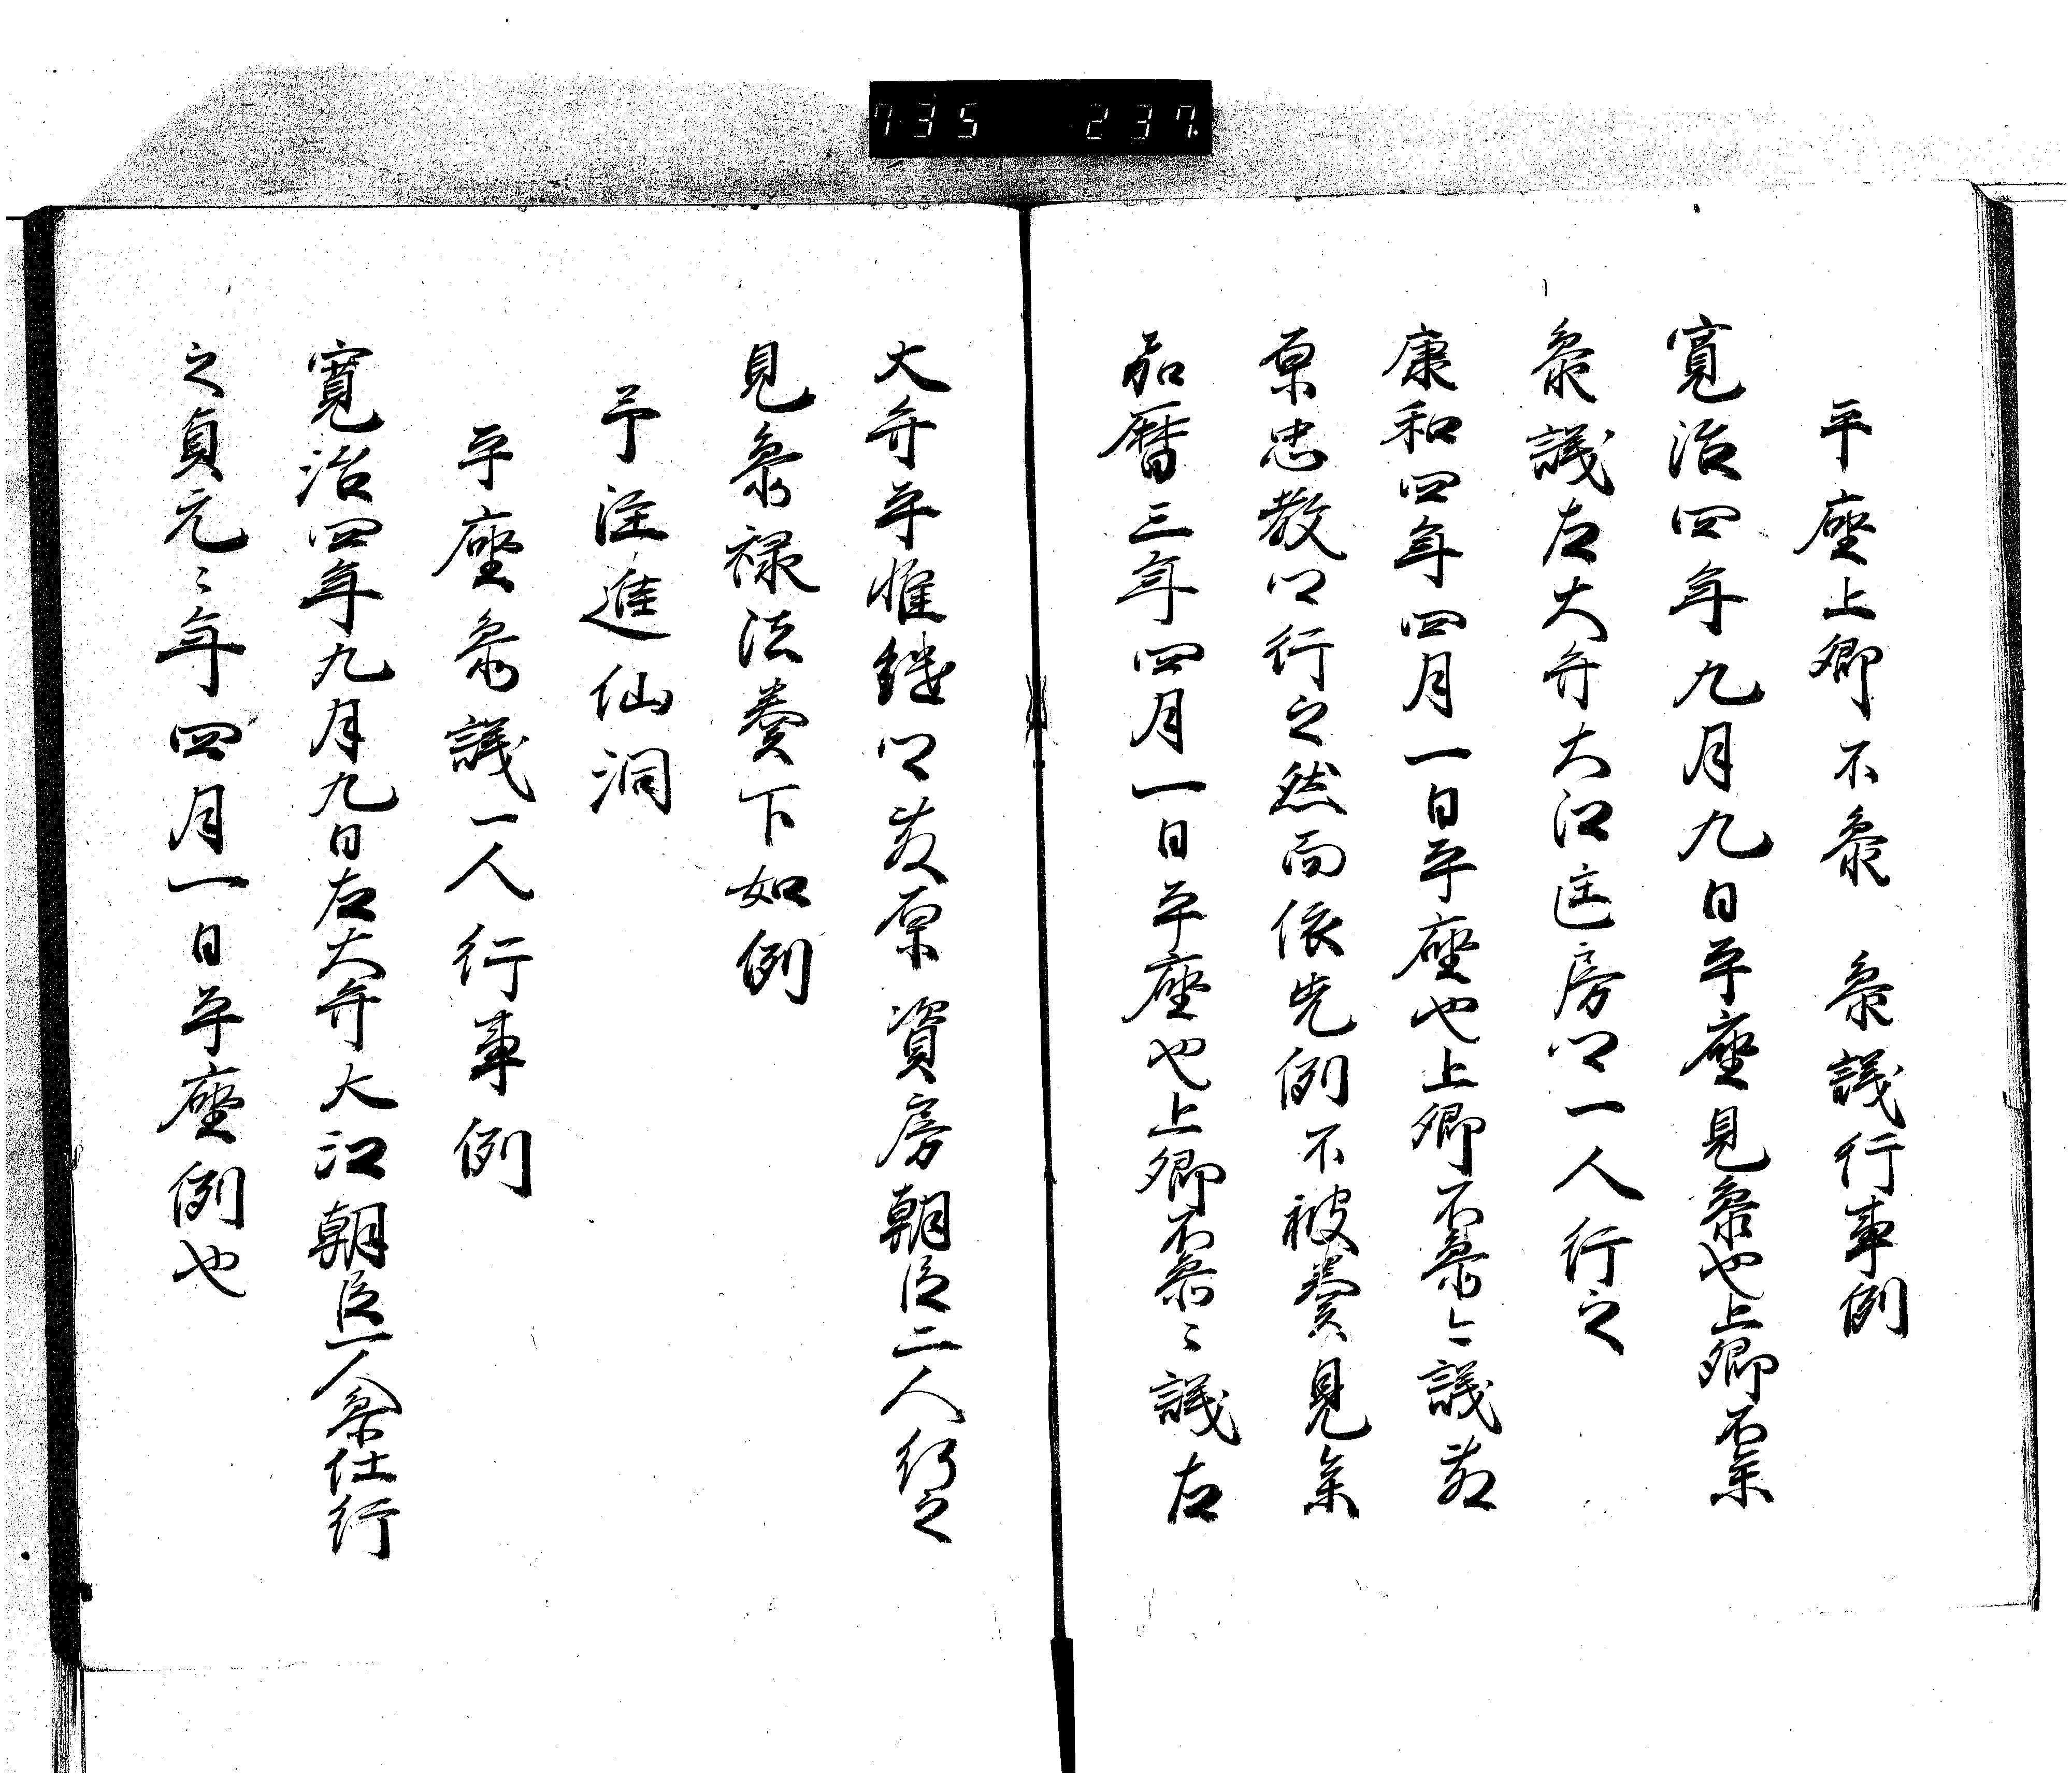 735 237
平座上卿不参参議行事例
寛治四年九月九日平座見参也上卿不参
参議左大弁大江匡房卿一人行之
康和四年四月一日平座也上卿不参々議藤
原忠教卿行之然而依先例不被奏見参
嘉暦三年四月一日平座也上卿不参々議左
大弁平惟継卿藤原資房朝臣二人行之
見参禄法奏下如例
予注進仙洞
平座参議一人行事例
寛治四年九月九日左大弁大江朝臣一人参仕行
之貞元々年四月一日平座例也